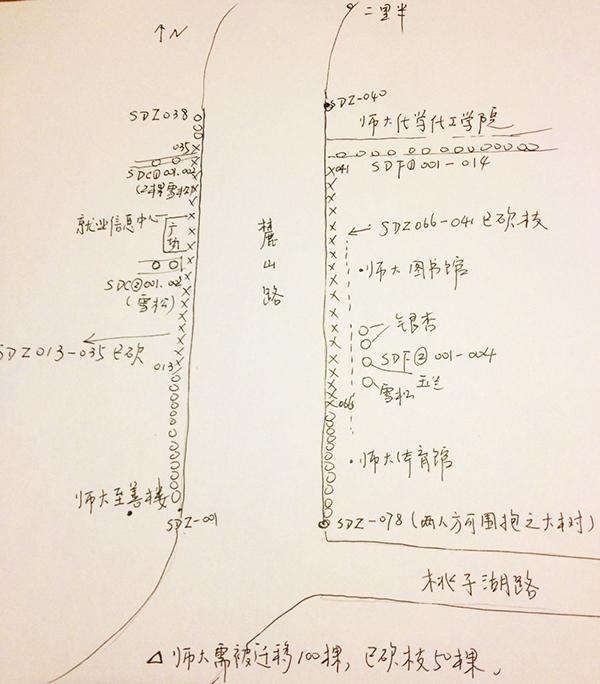 ↑N
二里半
SDZ038
035
SDC①001.002
(2棵雪松)
就业信息中心
广场
SDC②001.002
(雪松)
SDZ013-035已砍
013
师大至善楼
SDZ-001
麓山路
SDZ-040
师大化学化工学院
041
SDF①001-014
SDZ066-041已砍枝
·师大图书馆
银杏
SDF②001-004
玉兰
雪松
066
·师大体育馆
SDZ-078(两人方可围抱之大树)
桃子湖路
△师大需被迁移100棵,已砍枝50棵。